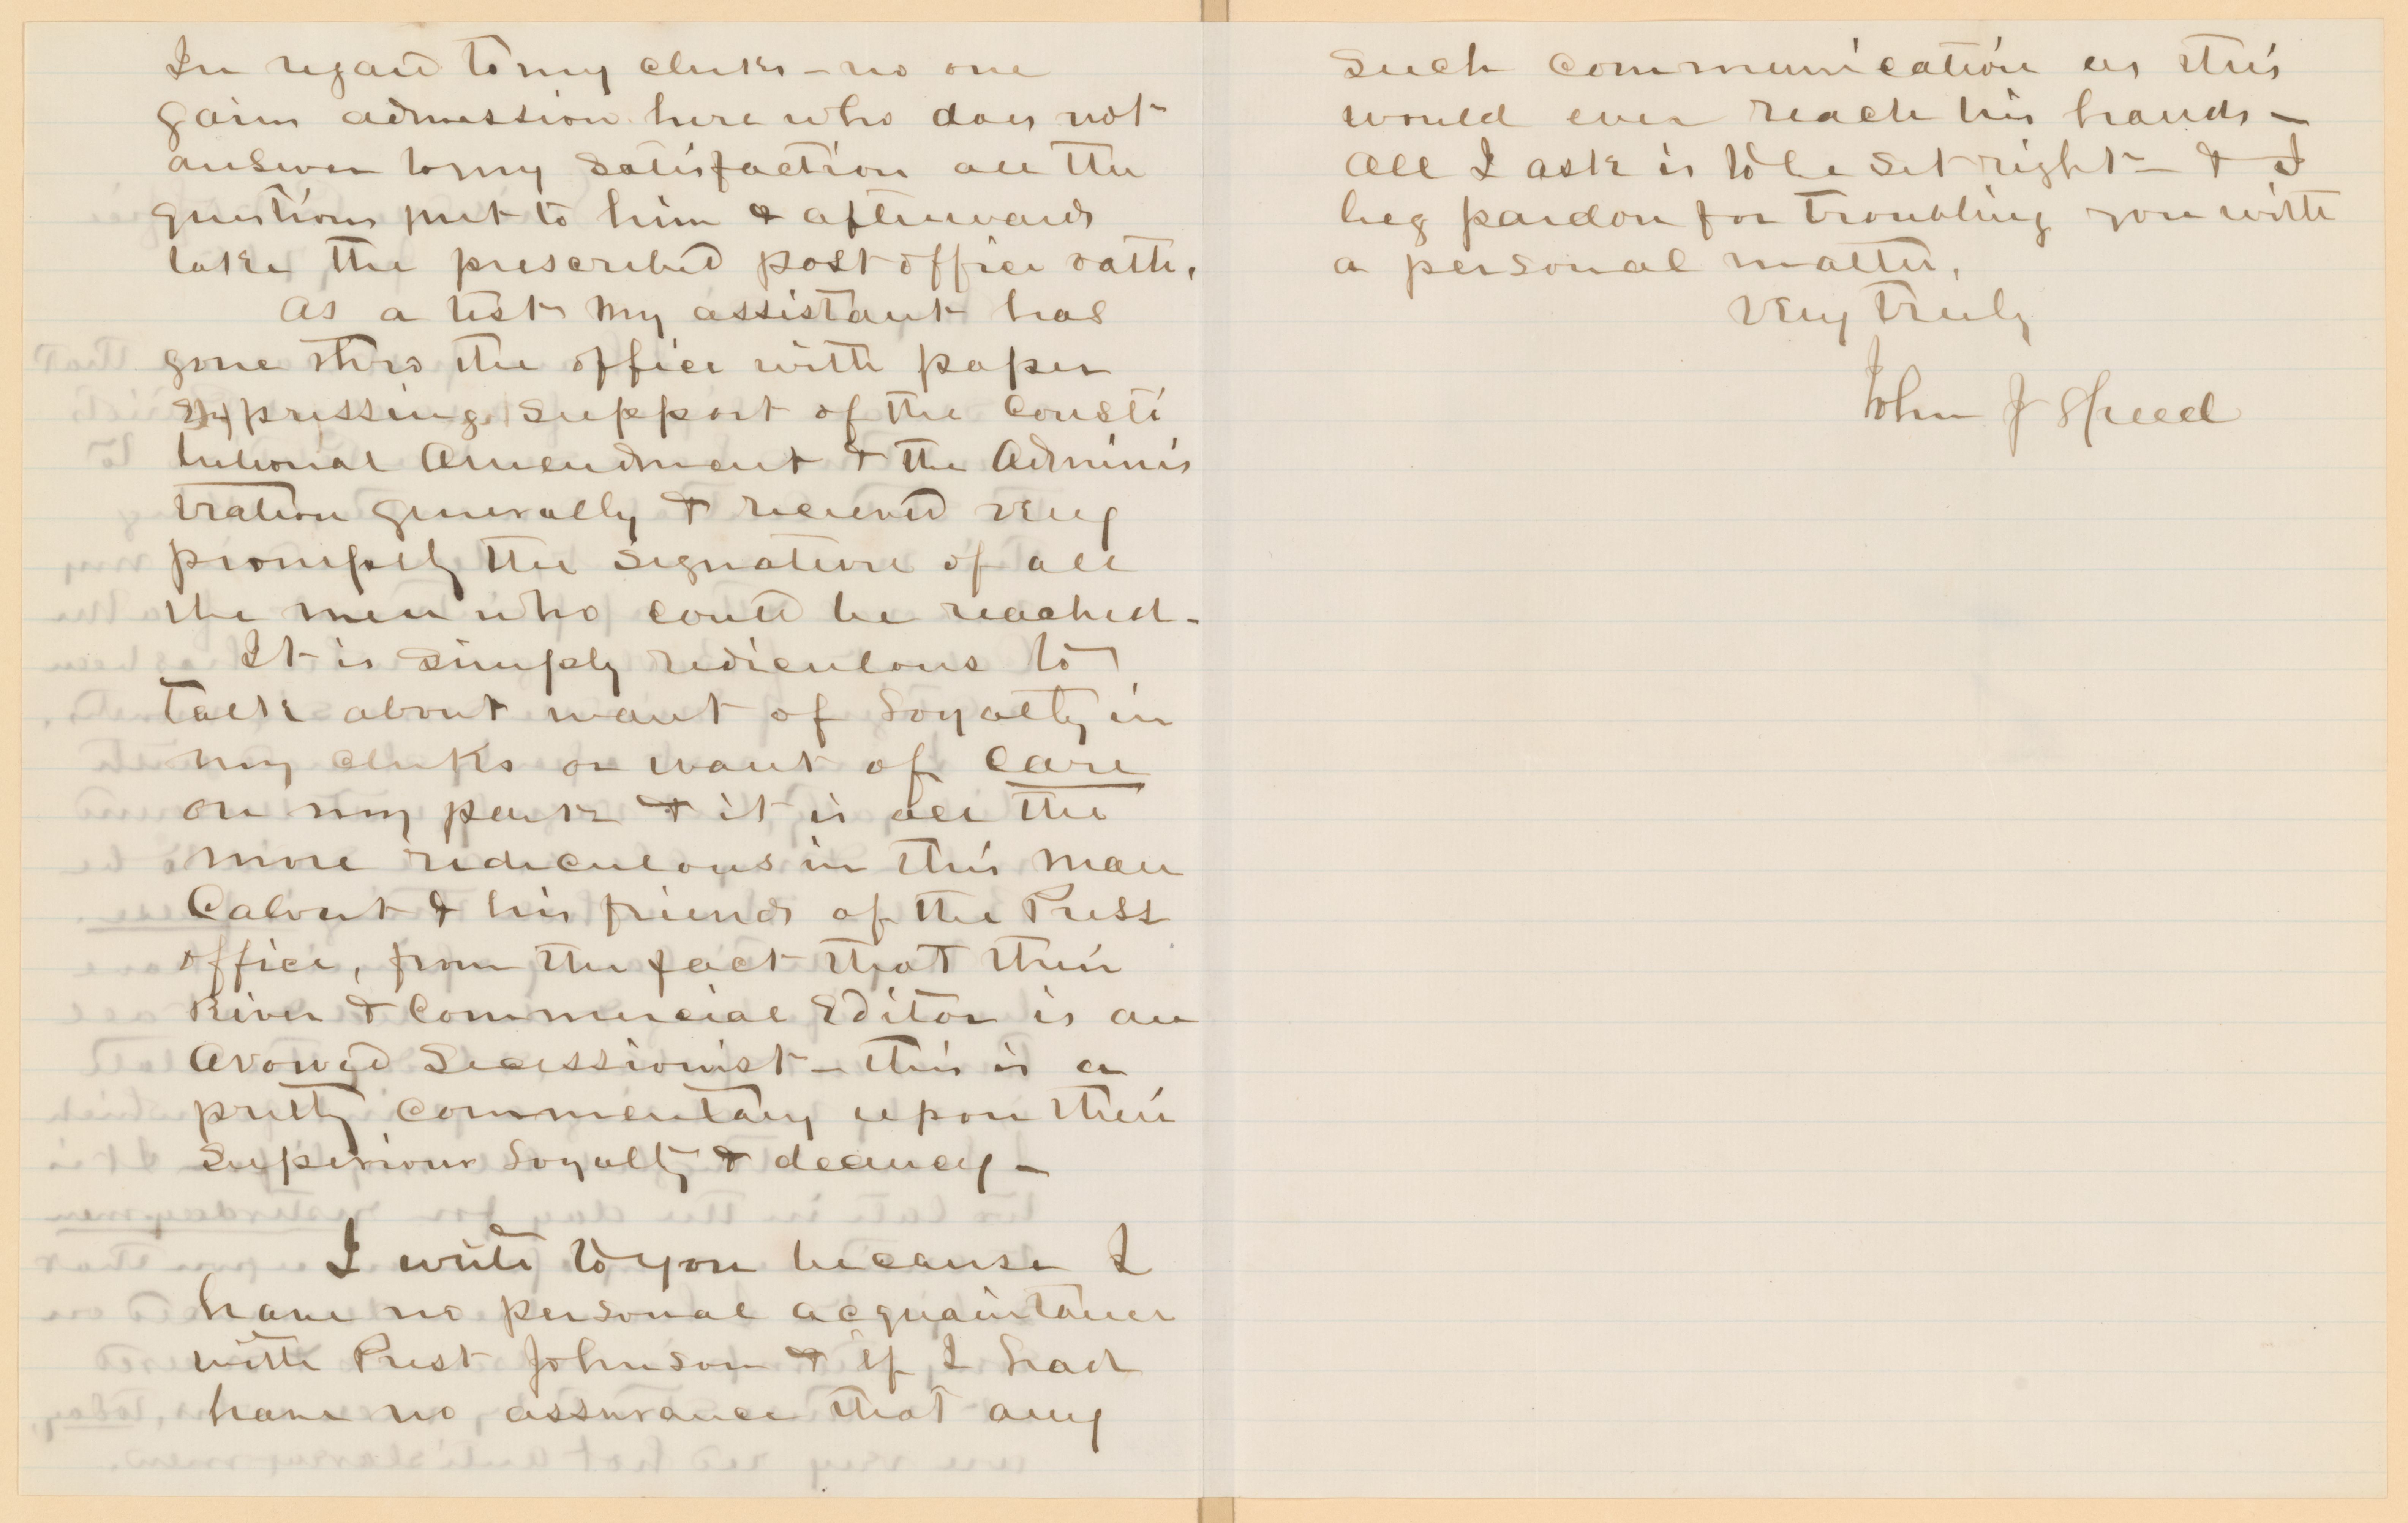 In regard to my clerks – no one
gains admission here who does not
answer to my satisfaction all the
questions put to him & afterwards
take the prescribed post office oath.
As a test my assistant has
gone thro the office with paper
expressing support of the Consti
tutional Amendment & the Adminis
tration generally & received very
promptly the signature of all
the men who could be reached –
It is simply ridiculous to
talk about want of loyalty in
my clerks or want of care
on my part & it is all the
more ridiculous in this man
Calvert & his friends of the Press
office, from the fact that their
River & Commercial Editor is an
avowed Secessionist – this is a
pretty commentary upon their
superiour loyalty & decency –
I write to you because I
have no personal acquaintance
with Prest Johnson & if I had
have no assurance that any
such communication as this
would ever reach his hands –
All I ask is to be set right – & I
beg pardon for troubling you with
a personal matter.
Very Truly
John J Speed